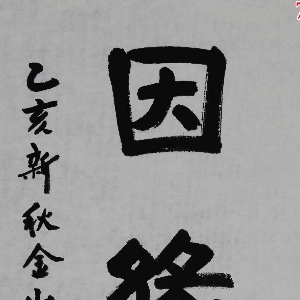 因
乙亥新秋金